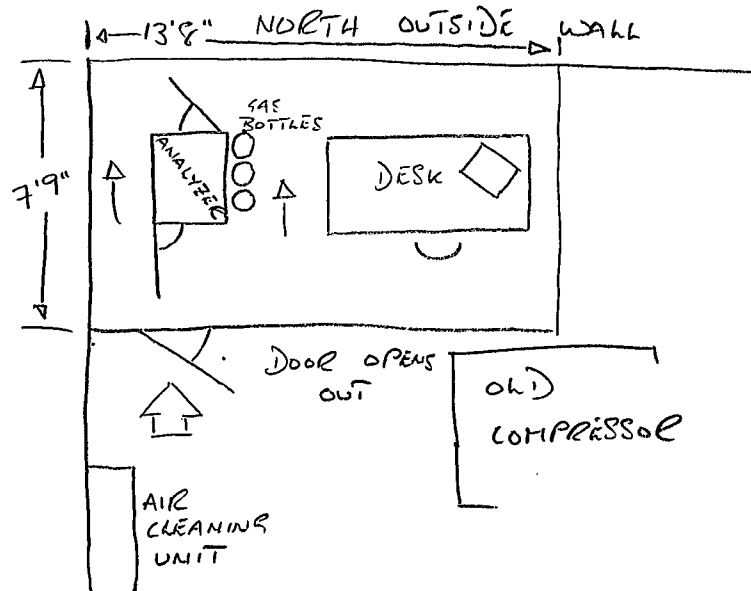 13'8" NORTH OUTSIDE WALL
GAS
BOTTLES
ANALYZER
DESK
7'9"
DOOR OPENS
OUT
OLD
COMPRESSOR
AIR
CLEANING
UNIT